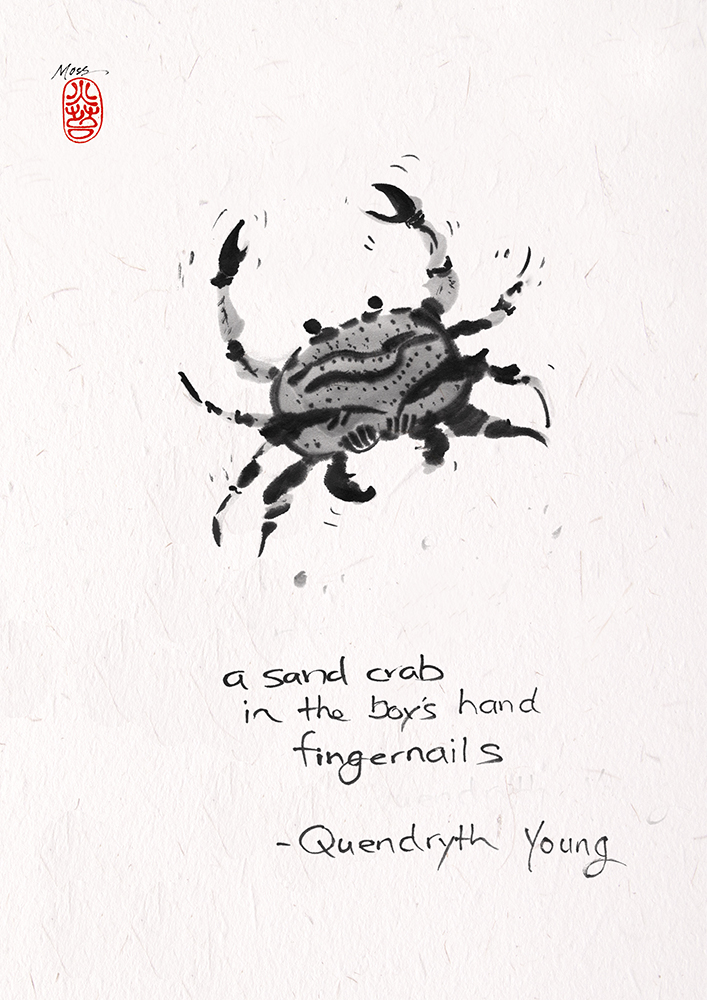 Moss
a sand crab
in the boy's hand
fingernails
-Quendryth Young